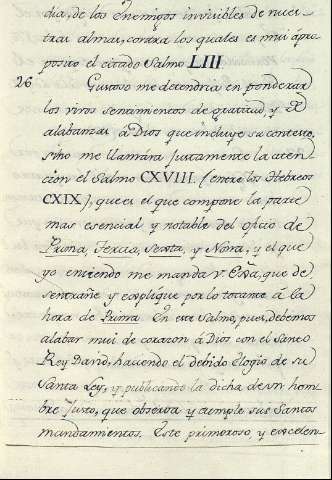 dia, de los Enemigos invisibles de nues-
tras almas, contra los quales es mui apro-
posito el citado Salmo LIII.
26 Gustoso me detendria en ponderar
los vivos sentimientos de gratitud, y de
alabanzas à Dios que incluye su contexto,
sino me llamára justamente la aten-
cion el Salmo CXVIII. (entre los Hebreos
CXIX), que es el que compone la parte
mas esencial y notable del oficio de
Prima, Tercia, Sexta, y Nona, y el que
yo entiendo me manda V. Exa, que de-
sentrañe y explique por lo tocante à la
hora de Prima. En este Salmo, pues, debemos
alabar mui de corazon à Dios con el Santo
Rey David, haciendo el debido elogio de su
Santa Ley, y publicando la dicha de un hom-
bre Justo, que observa y cumple sus Santos
mandamientos. Este primoroso y excelen-